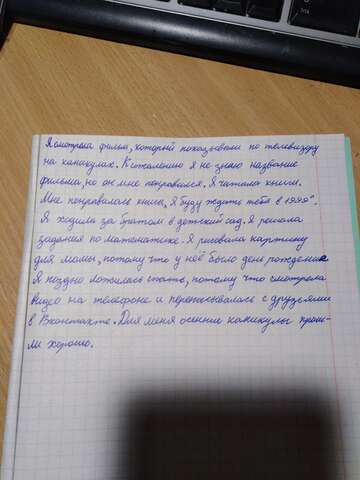 Я смотрела фильм, который показывали по телевизору
на каникулах. К сожалению я не знаю название
фильма, но он мне понравился. Я читала книги.
Мне понравилась книга „Я буду ждать тебя в 1999".
Я ходила за братом в детский сад. Я решала
задания по математике. Я рисовала картину
для мамы, потому что у неё было день рождения
Я поздно ложилась спать, потому что смотрела
видео на телефоне и переписывалась с друзьями
в Вконтакте. Для меня осенние каникулы прош-
ли хорошо.